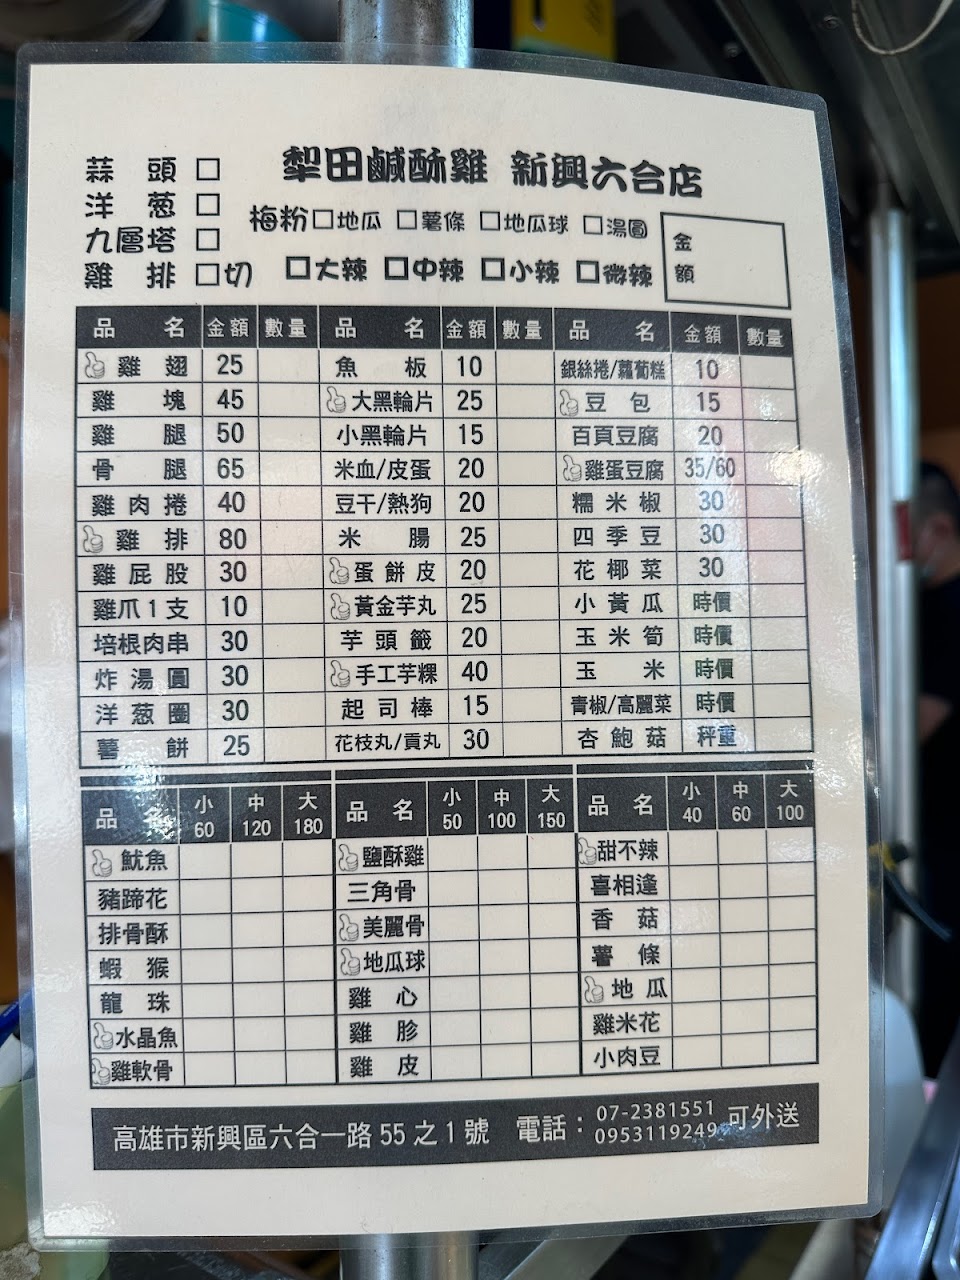 犁田鹹酥雞 新興六合店
蒜頭 □
洋蔥 □
九層塔 □
雞排 □切
梅粉 □地瓜 □薯條 □地瓜球 □湯圓
□大辣 □中辣 □小辣 □微辣
金額
品名 金額 數量 品名 金額 數量 品名 金額 數量
雞翅 25 魚板 10 銀絲捲/蘿蔔糕 10
雞塊 45 大黑輪片 25 豆包 15
雞腿 50 小黑輪片 15 百頁豆腐 20
骨腿 65 米血/皮蛋 20 雞蛋豆腐 35/60
雞肉捲 40 豆干/熱狗 20 糯米椒 30
雞排 80 米腸 25 四季豆 30
雞屁股 30 蛋餅皮 20 花椰菜 30
雞爪1支 10 黃金芋丸 25 小黃瓜 時價
培根肉串 30 芋頭籤 20 玉米筍 時價
炸湯圓 30 手工芋粿 40 玉米 時價
洋蔥圈 30 起司棒 15 青椒/高麗菜 時價
薯餅 25 花枝丸/貢丸 30 杏鮑菇 秤重
品名 小60 中120 大180 品名 小50 中100 大150 品名 小40 中60 大100
魷魚 鹽酥雞 甜不辣
豬蹄花 三角骨 喜相逢
排骨酥 美麗骨 香菇
蝦猴 地瓜球 薯條
龍珠 雞心 地瓜
水晶魚 雞胗 雞米花
雞軟骨 雞皮 小肉豆
高雄市新興區六合一路55之1號 電話：07-2381551 0953119249 可外送